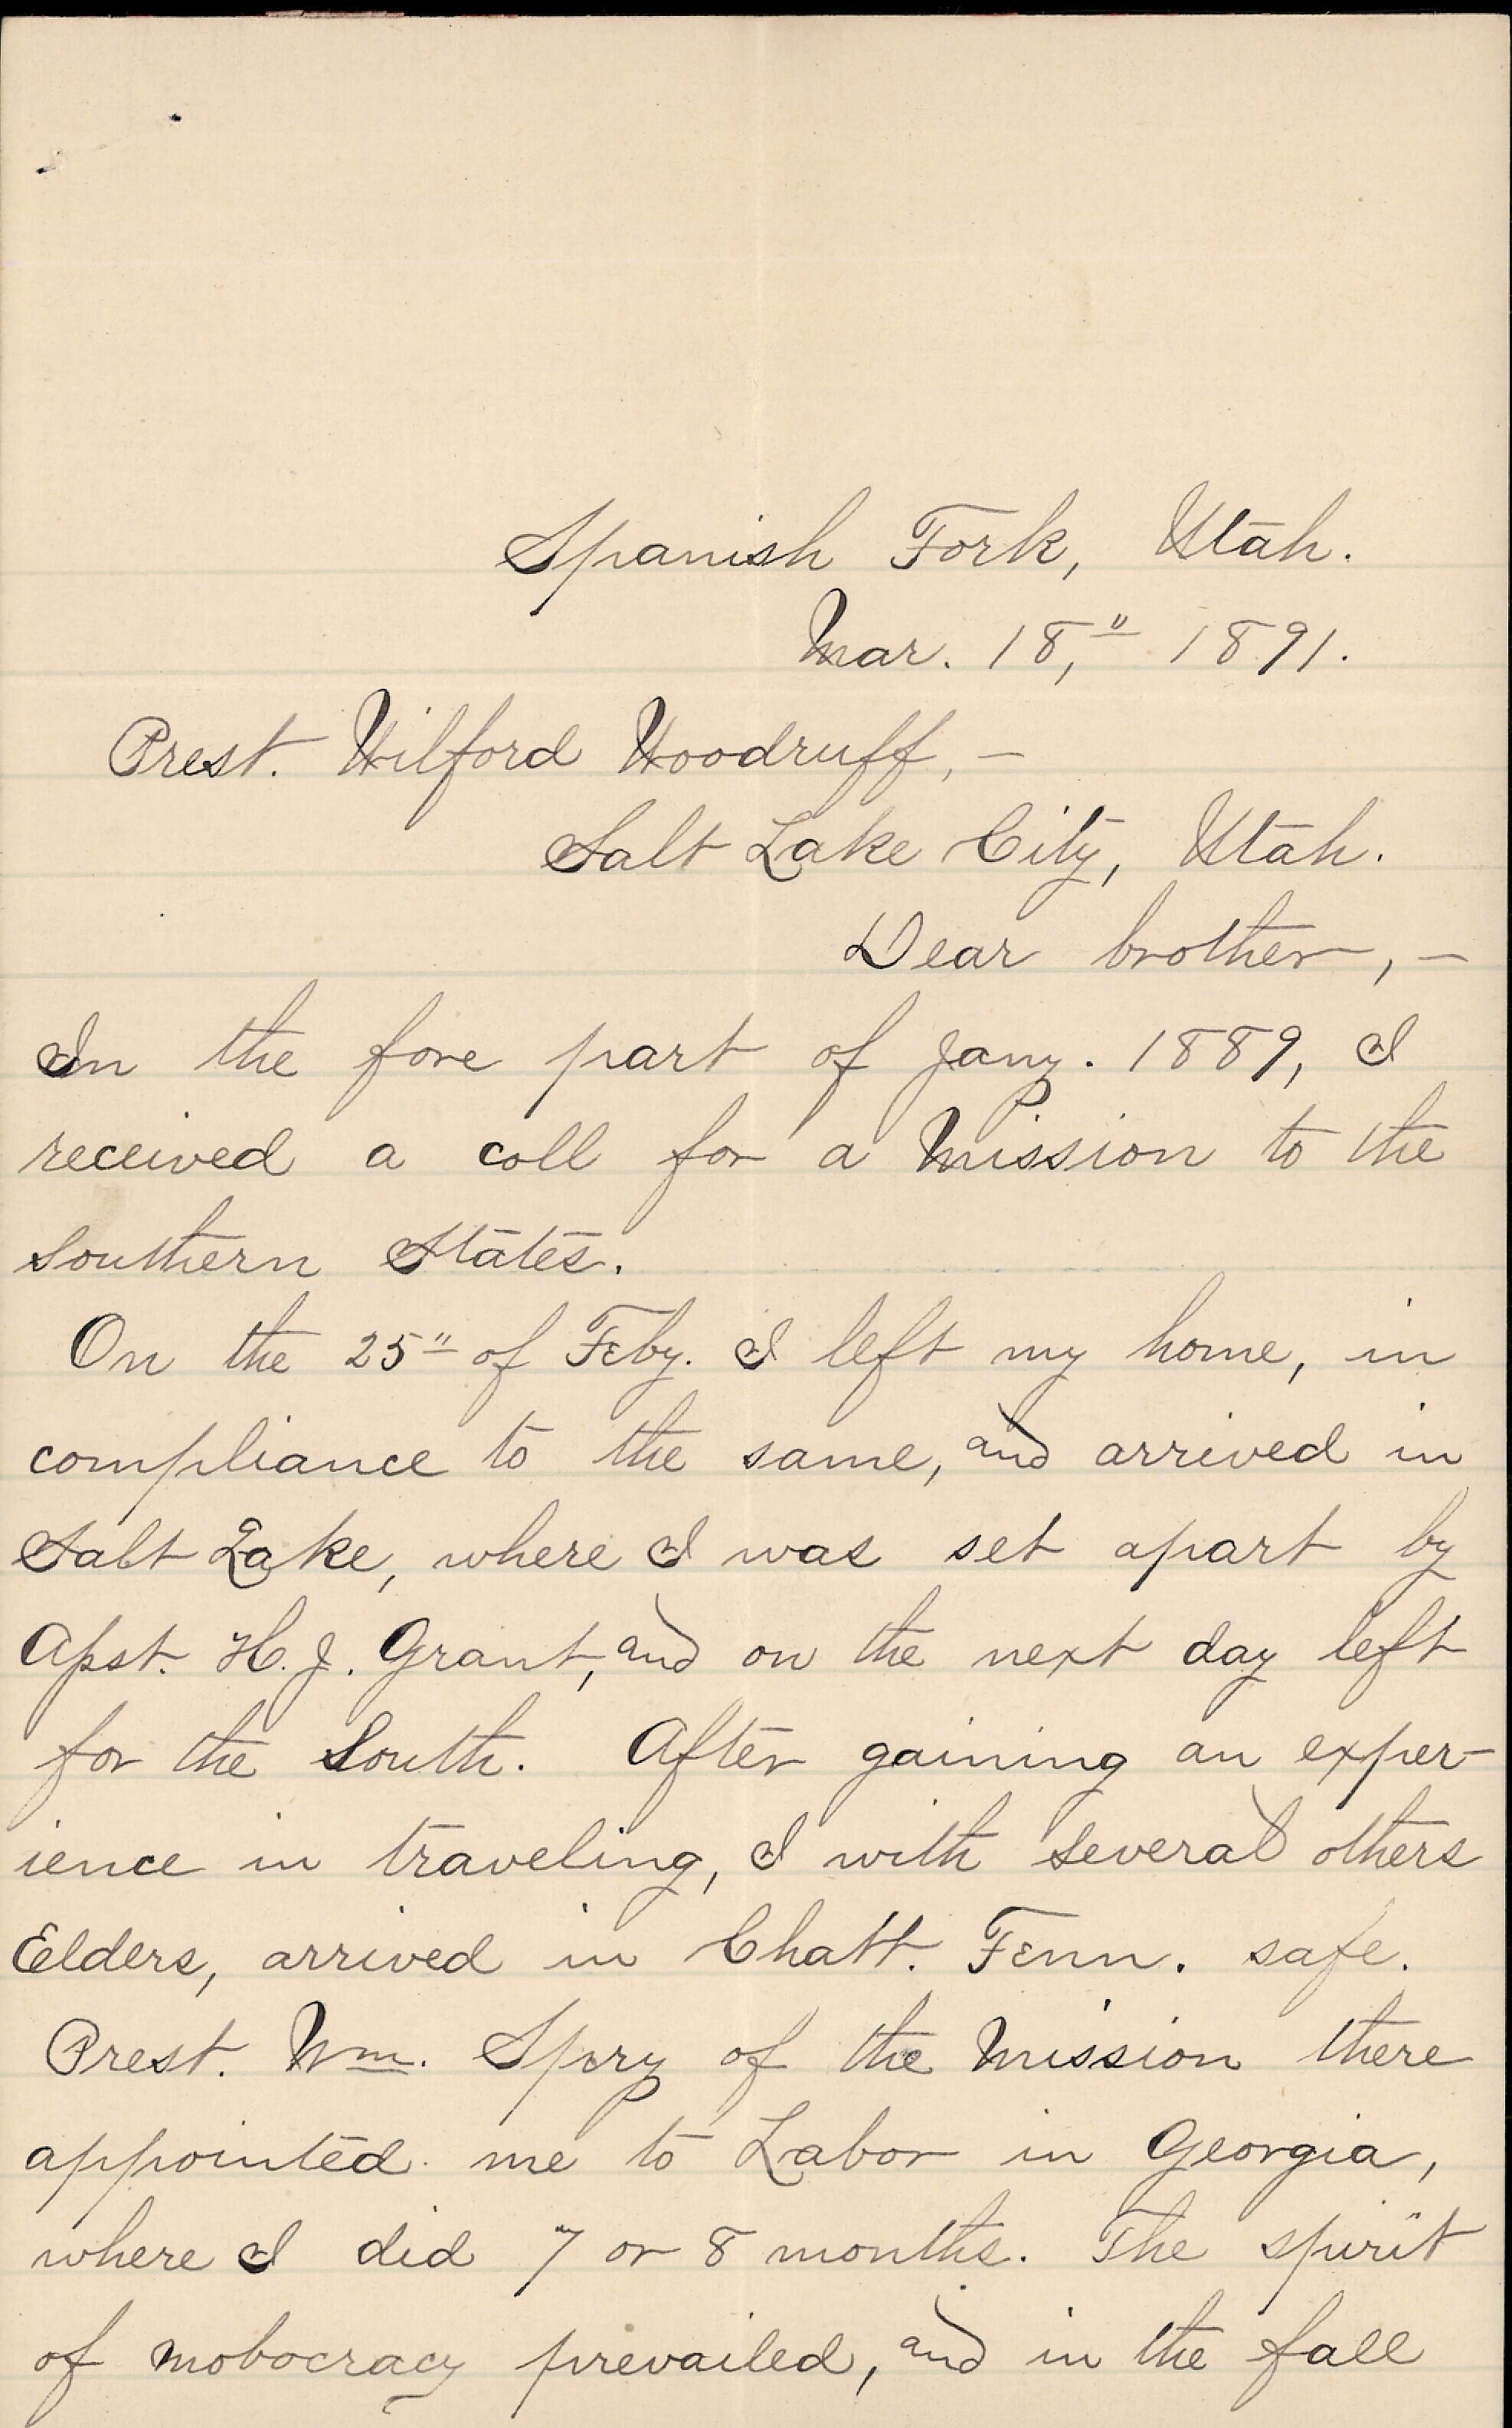 Spanish Fork, Utah.
Mar. 18," 1891.
Prest. Wilford Woodruff, –
Salt Lake City, Utah.
Dear brother, –
In the fore part of Jany. 1889, I
received a coll for a Mission to the
Southern States.
On the 25" of Feby. I left my home, in
compliance to the same, and arrived in
Salt Lake, where I was set apart by
Apst. H. J. Grant, and on the next day left
for the South. After gaining an exper-
ience in traveling, I with several others
Elders, arrived in Chatt. Tenn. safe.
Prest. Wm. Spry of the Mission there
appointed me to Labor in Georgia,
where I did 7 or 8 months. The spirit
of mobocracy prevailed, and in the fall